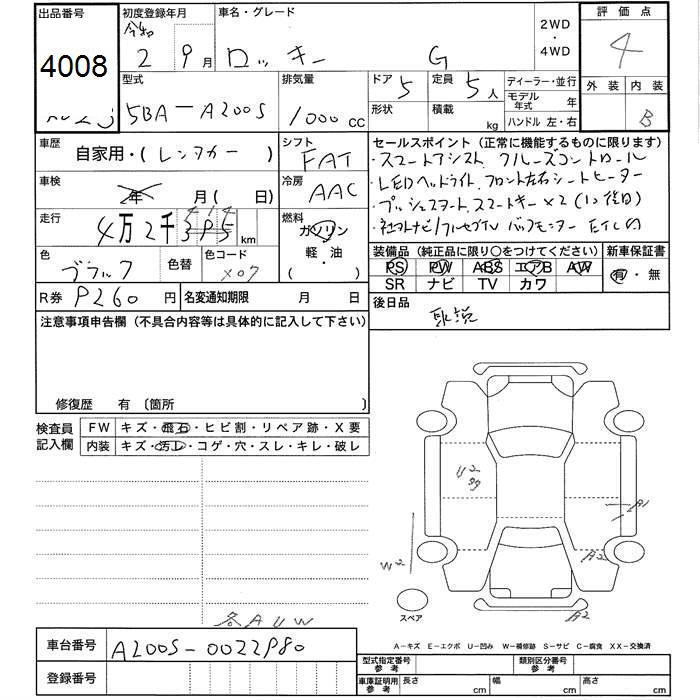 出品番号
4008
初度登録年月
令和
2 9月
車名・グレード
ロッキー G
2WD
・
4WD
評価点
4
外装 内装
B
型式
5BA-A200S
排気量
1000cc
ドア 5
形状
定員 5人
積載 kg
ディーラー・並行
モデル年式 年
ハンドル 左・右
車歴
自家用・(レンタカー)
シフト
FAT
セールスポイント (正常に機能するものに限ります)
・スマートアシスト クルーズコントロール
・LEDヘッドライト.フロント左右シートヒーター
・プッシュスタート.スマートキー×2(1ヶ後日)
・社外ナビ/フルセグTV バックモニター ETC
車検
年 月(日)
冷房
AAC
走行
4万2千 km
燃料
ガソリン
軽・油
・
( )
色
ブラック
色替
色コード
X07
装備品 (純正品に限り○をつけてください)
新車保証書
PS PW ABS エアB AW
SR ナビ TV カワ
有・無
R券 P260円
名変通知期限 月 日
後日品
取説
注意事項申告欄 (不具合内容等は具体的に記入して下さい)
修復歴 有 〔箇所 〕
検査員
記入欄
FW キズ・飛石・ヒビ割・リペア跡・X要
内装 キズ・汚レ・コゲ・穴・スレ・キレ・破レ
U2
A1
W2
A2
スペア
A2
各AUW
A-キズ E-エクボ U-凹み W-補修跡 S-サビ C-腐食 XX-交換済
車台番号
A200S-0022980
登録番号
型式指定番号
参考
類別区分番号
参考
車庫証明用
参考
長さ cm 幅 cm 高さ cm